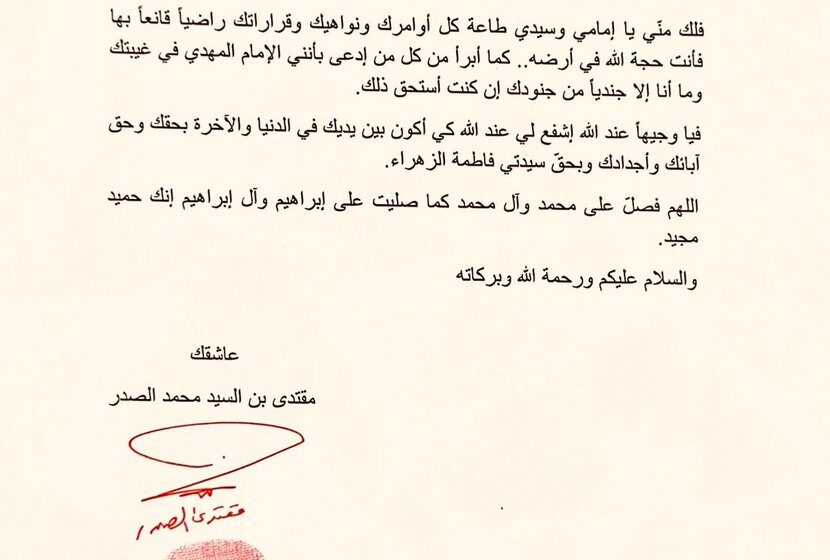 فلك منّي يا إمامي وسيدي طاعة كل أوامرك ونواهيك وقراراتك راضياً قانعاً بها
فأنت حجة الله في أرضه.. كما أبرأ من كل من إدعى بأنني الإمام المهدي في غيبتك
وما أنا إلا جندياً من جنودك إن كنت أستحق ذلك.
فيا وجيهاً عند الله إشفع لي عند الله كي أكون بين يديك في الدنيا والآخرة بحقك وحق
آبائك وأجدادك وبحقّ سيدتي فاطمة الزهراء.
اللهم فصلّ على محمد وآل محمد كما صليت على إبراهيم وآل إبراهيم إنك حميد
مجيد.
والسلام عليكم ورحمة الله وبركاته
عاشقك
مقتدى بن السيد محمد الصدر
مقتدى الصدر